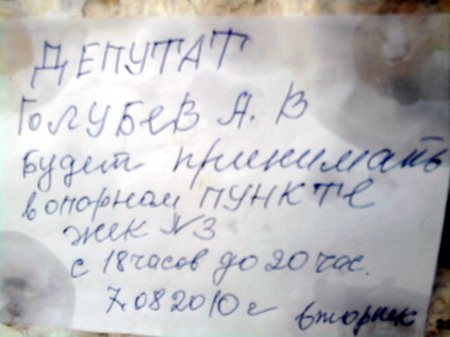 ДЕПУТАТ
ГОЛУБЕВ А. В
Будет принимать
в опорном ПУНКТЕ
ЖЕК №3
с 18 часов до 20 час.
7.08 2010 г
вторник